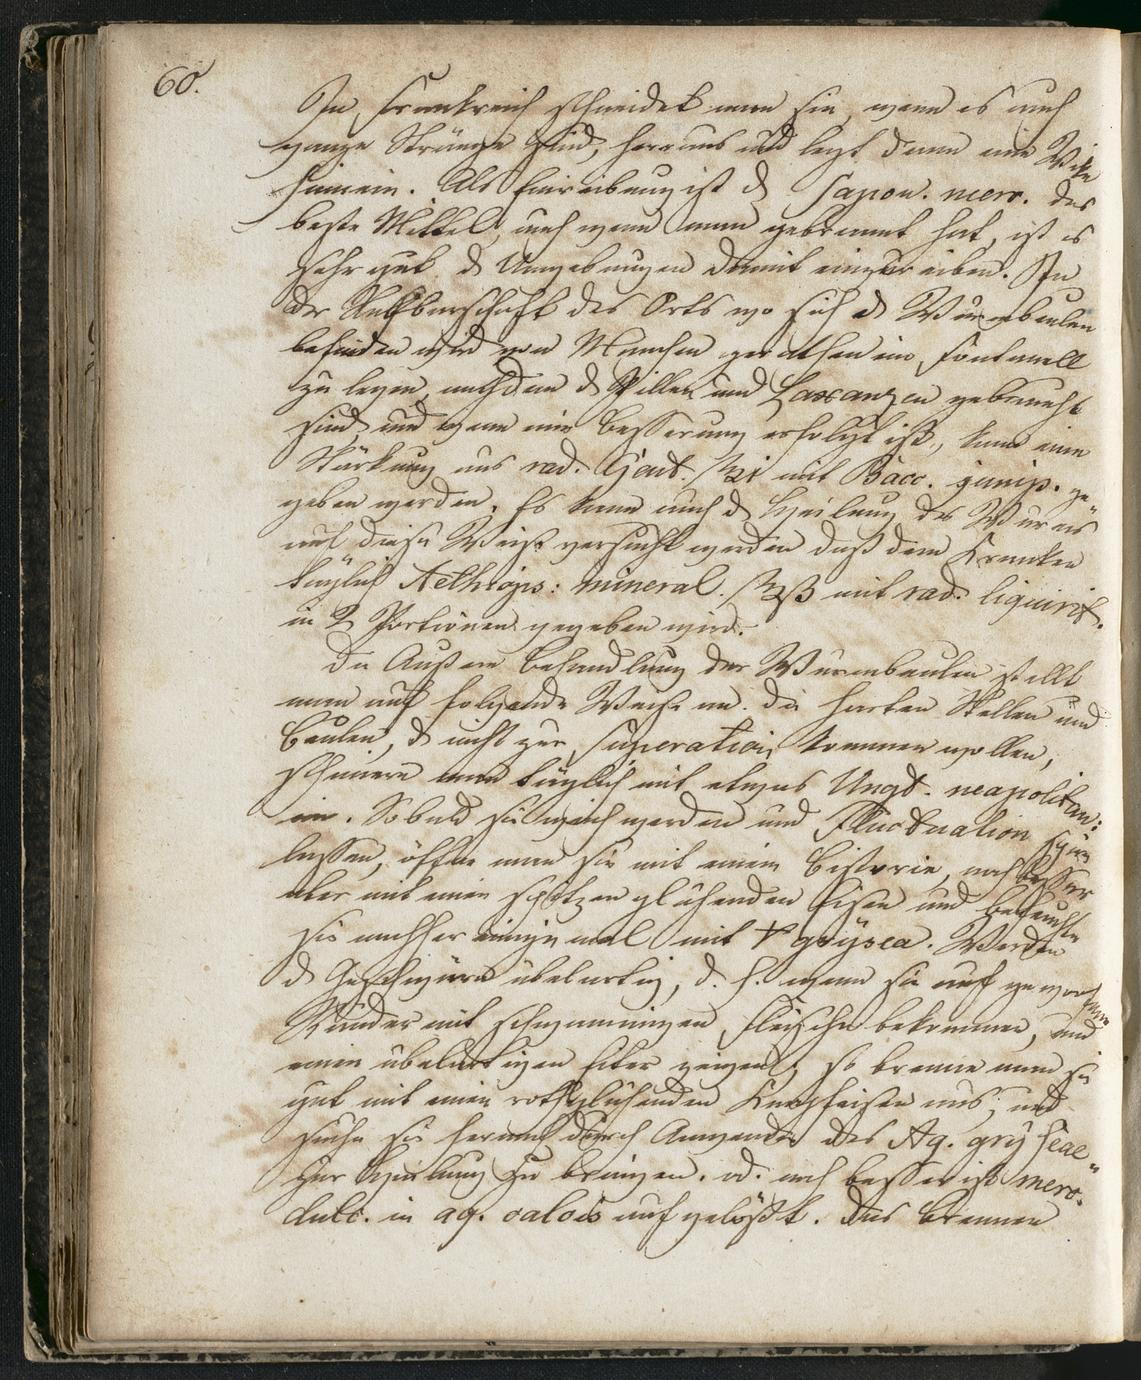 60.
In Frankreich schneidet man sie, wenn es auch
ganze Stränge sind, heraus und legt dann eine Wieke
hinein. Als Einreibung ist d Sapon. merc. das
beste Mittel, auch wenn man gebrannt hat, ist es
sehr gut d Umgebungen damit einzureiben. In
der Nachbarschaft des Orts wo sich d Wurmbeulen
befinden wird von Manchen gerathen ein Fontanell
zu legen, nachdem d Pillen und Laxanzen gebraucht
sind, und wenn eine Besserung erfolgt ist, kann eine
Stärkung aus rad. Gent. ℥i mit Bacc. junip. ge„
geben werden. Es kann auch d Heilung des Wurms
auf diese Weise versucht werden daß dem Kranken
täglich Aethiops: mineral. ℥ß mit rad. liquirit.
in 2 Portionen gegeben wird.
Die Außere Behandlung der Wurmbeulen stellt
man auf folgende Weise an. Die harten Stellen und
Beulen, d nicht zur Superation kommen wollen,
schmiere man täglich mit etwas Ungt. neapolitan:
ein. Sobald sie weich werden und Fluctuation spüren
lassen, öffne man sie mit einem Bistorie, noch besser
aber mit einem spitzen glühenden Eisen und befeuchte
sie nachher einige mal mit grÿsea. Werden
d Geschwüre übelartig, d. h. wenn sie aufgeworfene
Ränder mit schwammigen Fleische bekommen, und
einen übelartigen Eiter zeigen, so brenne man sie
gut mit einem rothglühenden Knopfeisen aus, und
suche sie hernach durch Anwenden des Aq. grÿseae„
zur Heilung zu bringen. od. noch besser ist merc.
dulc. in aq. calcis aufgelößt. Das Brennen